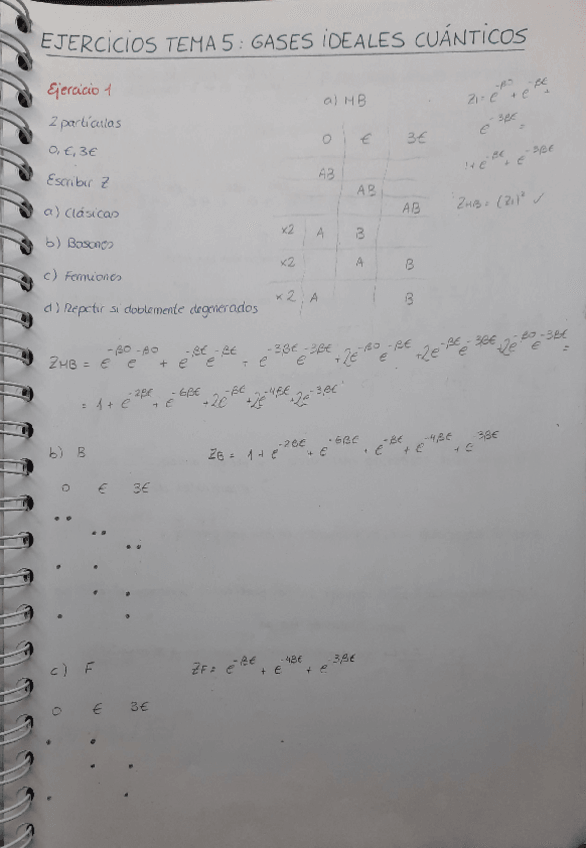 EJERCICIOS TEMA 5: GASES IDEALES CUÁNTICOS
Ejercicio 1
2 partículas
0, ε, 3ε
Escribir Z
a) Clásicas
b) Bosones
c) Fermiones
d) Repetir si doblemente degenerados
a) MB
0 ε 3ε
AB
AB
AB
x2 A B
x2 A B
x2 A B
Z₁ = e^-β0 + e^-βε +
e^-3βε =
1 + e^-βε + e^-3βε
Z_MB = (Z₁)² ✓
Z_MB = e^-β0 e^-β0 + e^-βε e^-βε + e^-3βε e^-3βε + 2e^-β0 e^-βε + 2e^-βε e^-3βε + 2e^-β0 e^-3βε =
= 1 + e^-2βε + e^-6βε + 2e^-βε + 2e^-4βε + 2e^-3βε
b) B
Z_B = 1 + e^-2βε + e^-6βε + e^-βε + e^-4βε + e^-3βε
0 ε 3ε
c) F
Z_F = e^-βε + e^-4βε + e^-3βε
0 ε 3ε